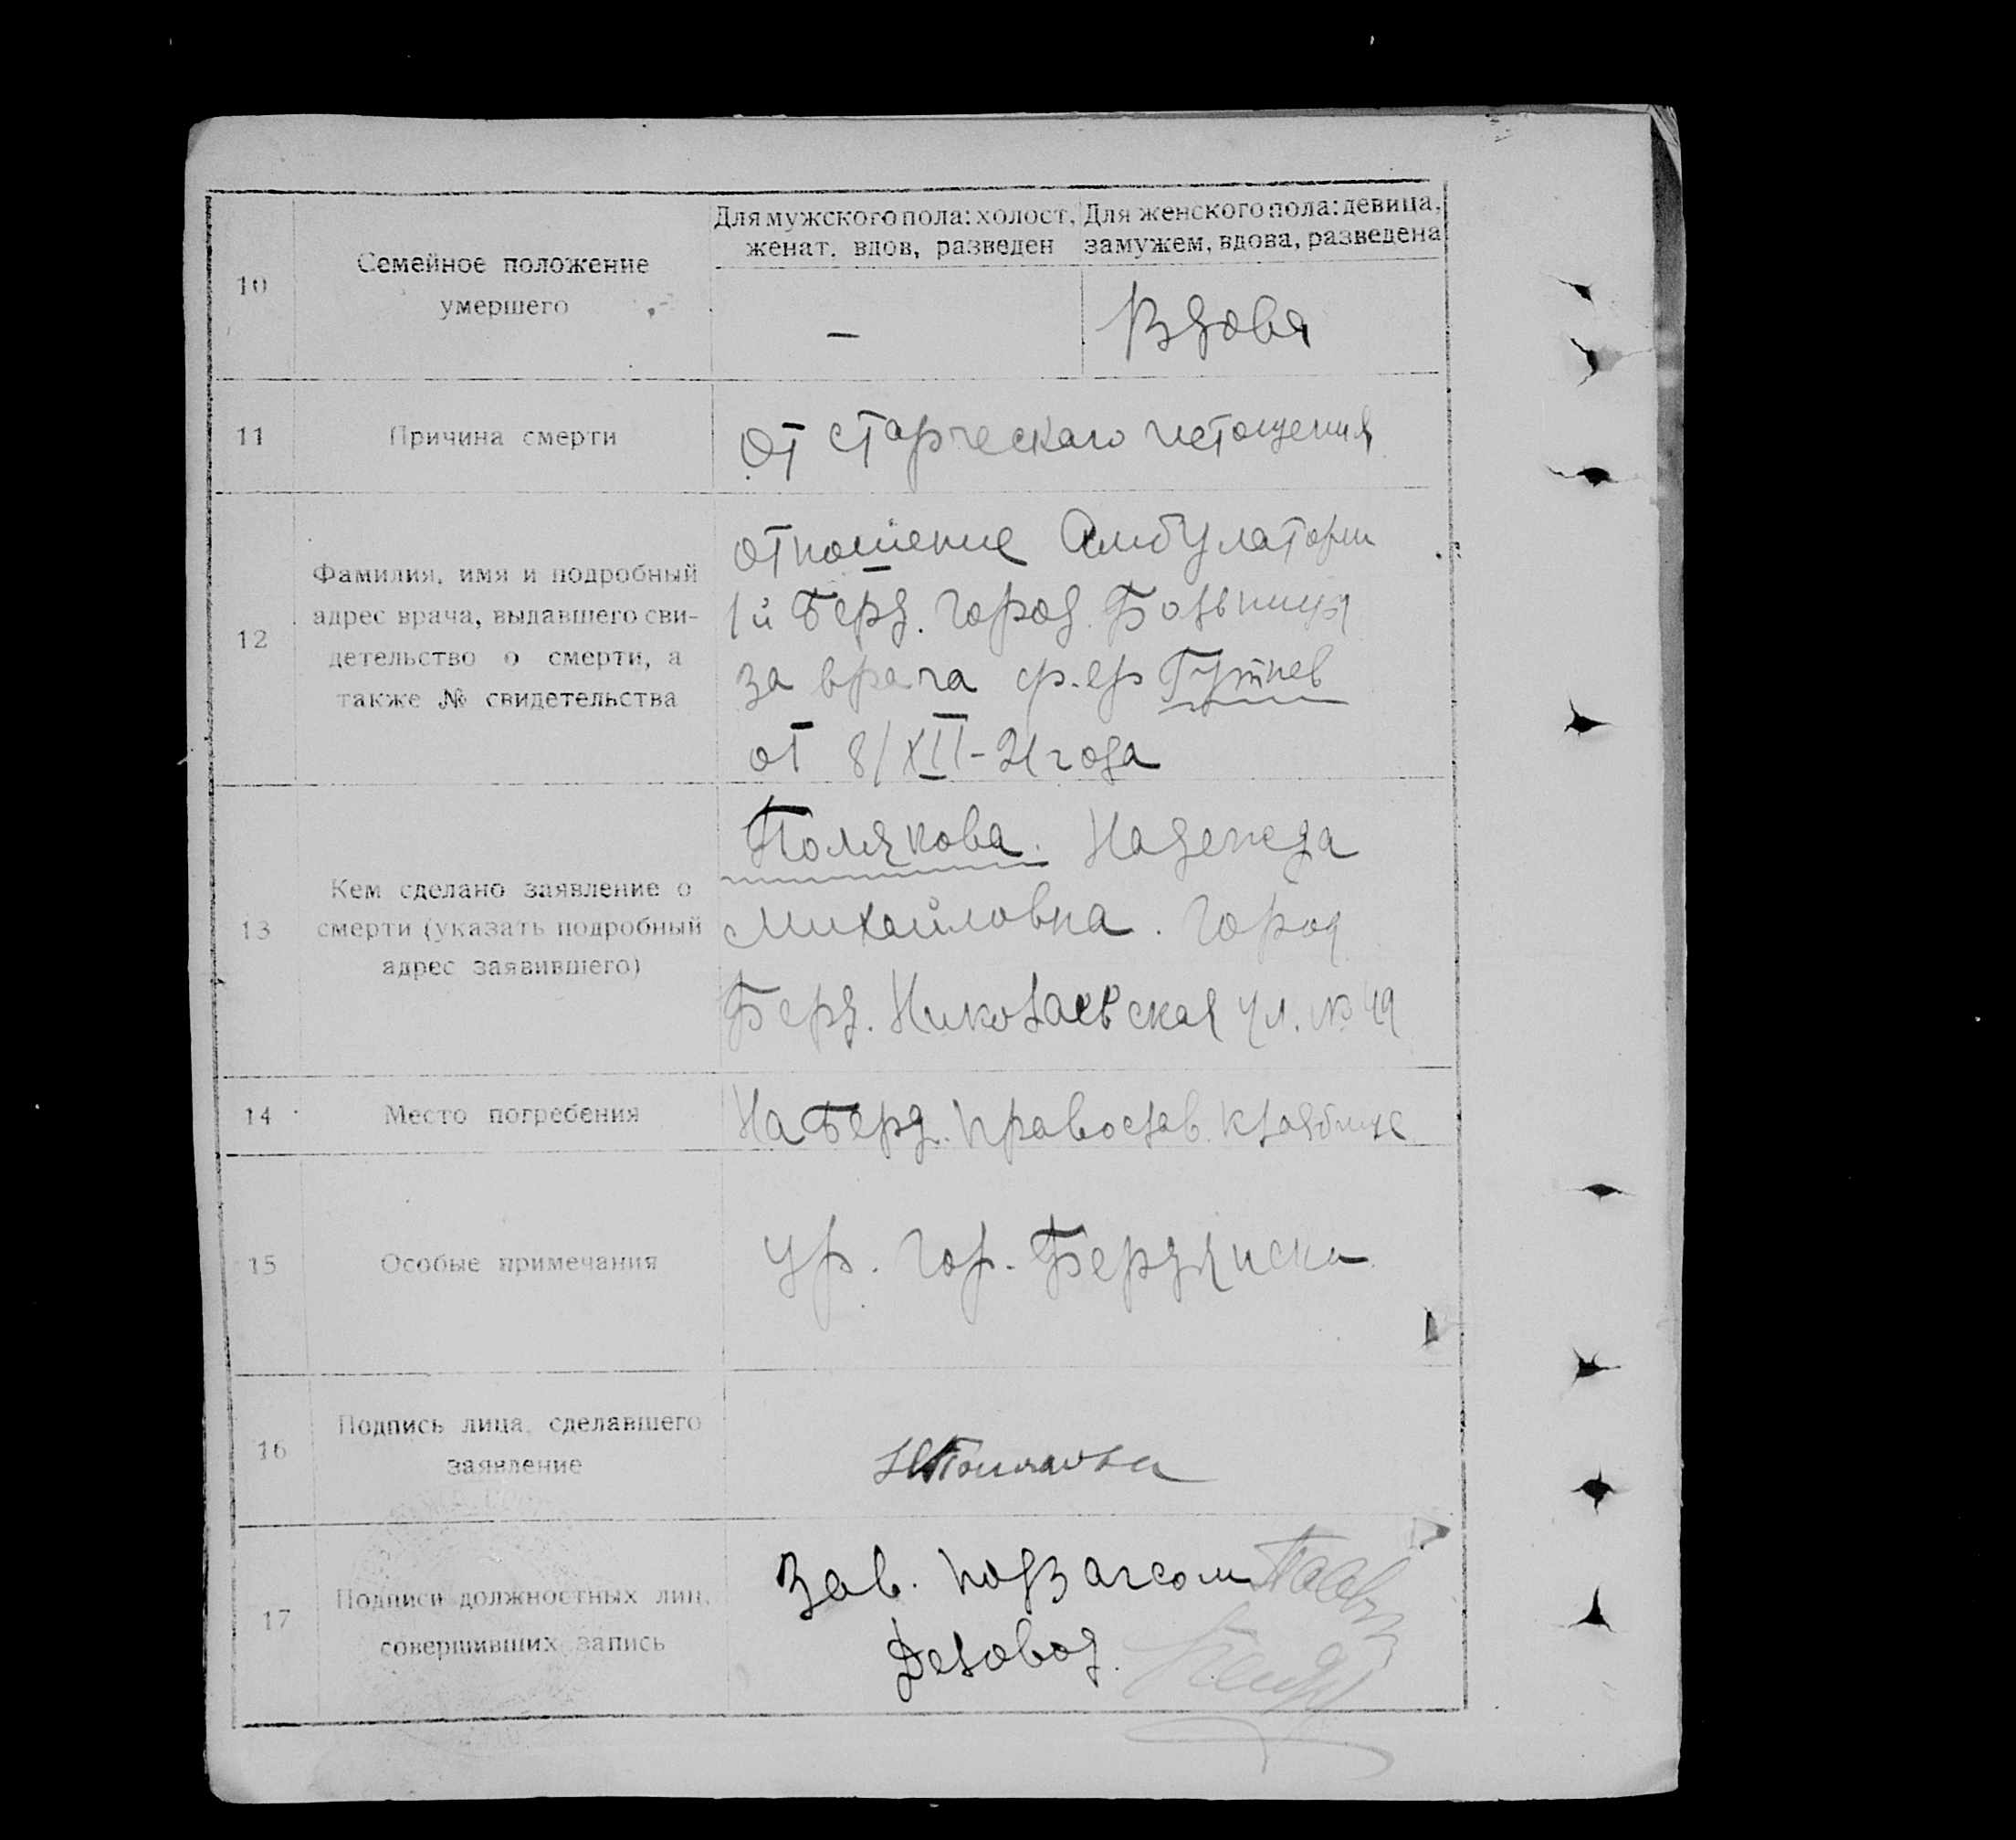 10
Семейное положение
умершего
Для мужского пола: холост,
женат, вдов, разведен
Для женского пола: девица,
замужем, вдова, разведена
—
Вдова
11
Причина смерти
От старческаго истощения
12
Фамилия, имя и подробный
адрес врача, выдавшего сви-
детельство о смерти, а
также № свидетельства
отношение Амбулатории
1й Берд. город. Больница
за врача ф.ер
от 8/XII-21 года
13
Кем сделано заявление о
смерти (указать подробный
адрес заявившего)
Полякова. Надежда
Михайловна. Город
Берд. Николаевская ул. № 49
14
Место погребения
На Берд. православ. кладбище
15
Особые примечания
Ур. гор. Бердянска
16
Подпись лица, сделавшего
заявление
НПолякова
17
Подписи должностных лиц,
совершивших запись
Зав. подзагсом
Деловод.